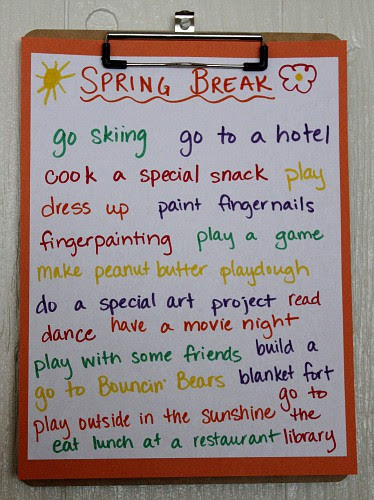 SPRING BREAK
go skiing go to a hotel
cook a special snack play
dress up paint fingernails
fingerpainting play a game
make peanut butter playdough
do a special art project read
dance have a movie night
play with some friends build a
go to Bouncin' Bears blanket fort
play outside in the sunshine go to the
eat lunch at a restaurant library